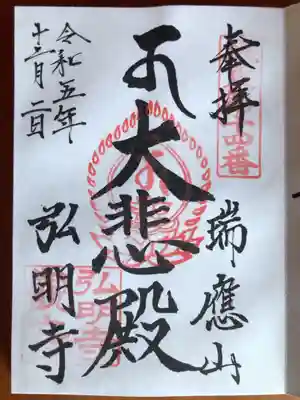 奉拝
瑞應山
大悲殿
令和五年
十二月二日
弘明寺
弘明寺